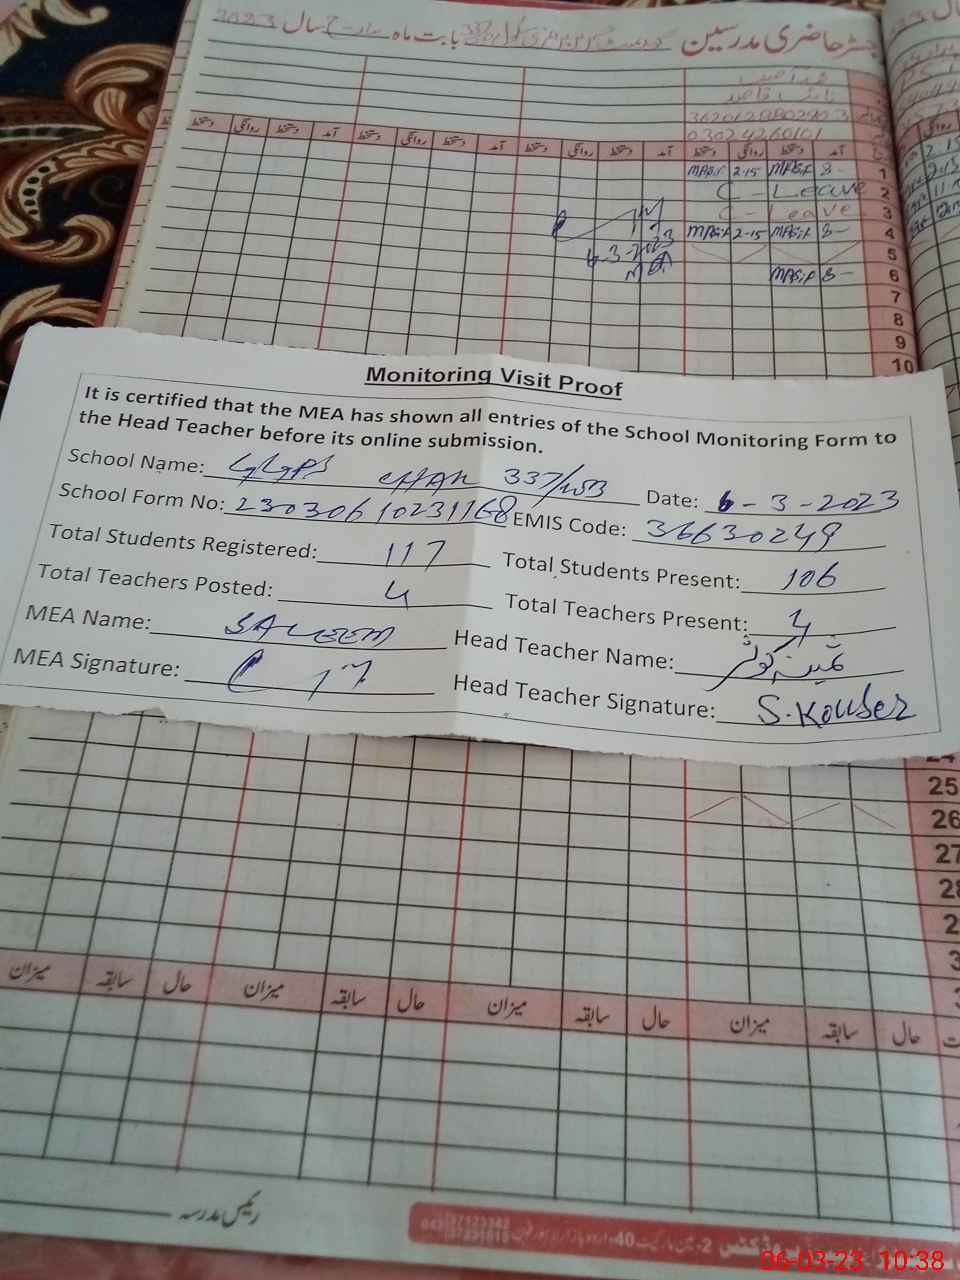 رجسٹر حاضری مدرسین بابت ماہ مارچ سال 2023
نائب قاصد
03024260101
آمد دستخط روانگی دستخط آمد دستخط روانگی دستخط آمد دستخط روانگی دستخط
1 8- MASif 2-15 MASif
2 C - Leave
3 C - Leave
4 8- MASif 2-15 MASif
5
6 8- MASif
6-3-2023
MEA
7
8
9
10
Monitoring Visit Proof
It is certified that the MEA has shown all entries of the School Monitoring Form to
the Head Teacher before its online submission.
School Name: GGPS CHAK 337/WB Date: 6-3-2023
School Form No: 23030610231168 EMIS Code: 36630249
Total Students Registered: 117 Total Students Present: 106
Total Teachers Posted: 4 Total Teachers Present: 4
MEA Name: SALEEM Head Teacher Name:
MEA Signature: Head Teacher Signature: S.Kouser
25
26
27
28
حال سابقہ میزان حال سابقہ میزان حال سابقہ میزان حال سابقہ میزان
رئیس مدرسہ
06-03-23 10:38